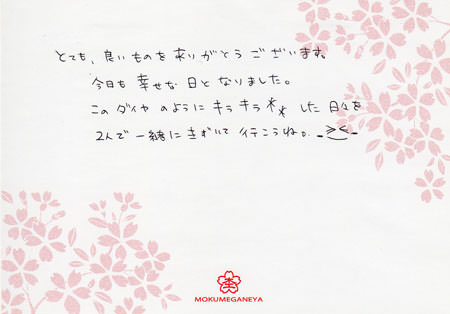 とても、良いものを ありがとう ございます。
今日も 幸せな 日と なりました。
この ダイヤ のように キラ キラ ** した 日々を
2人で 一緒に きずいて 行こうね。
MOKUMEGANEYA